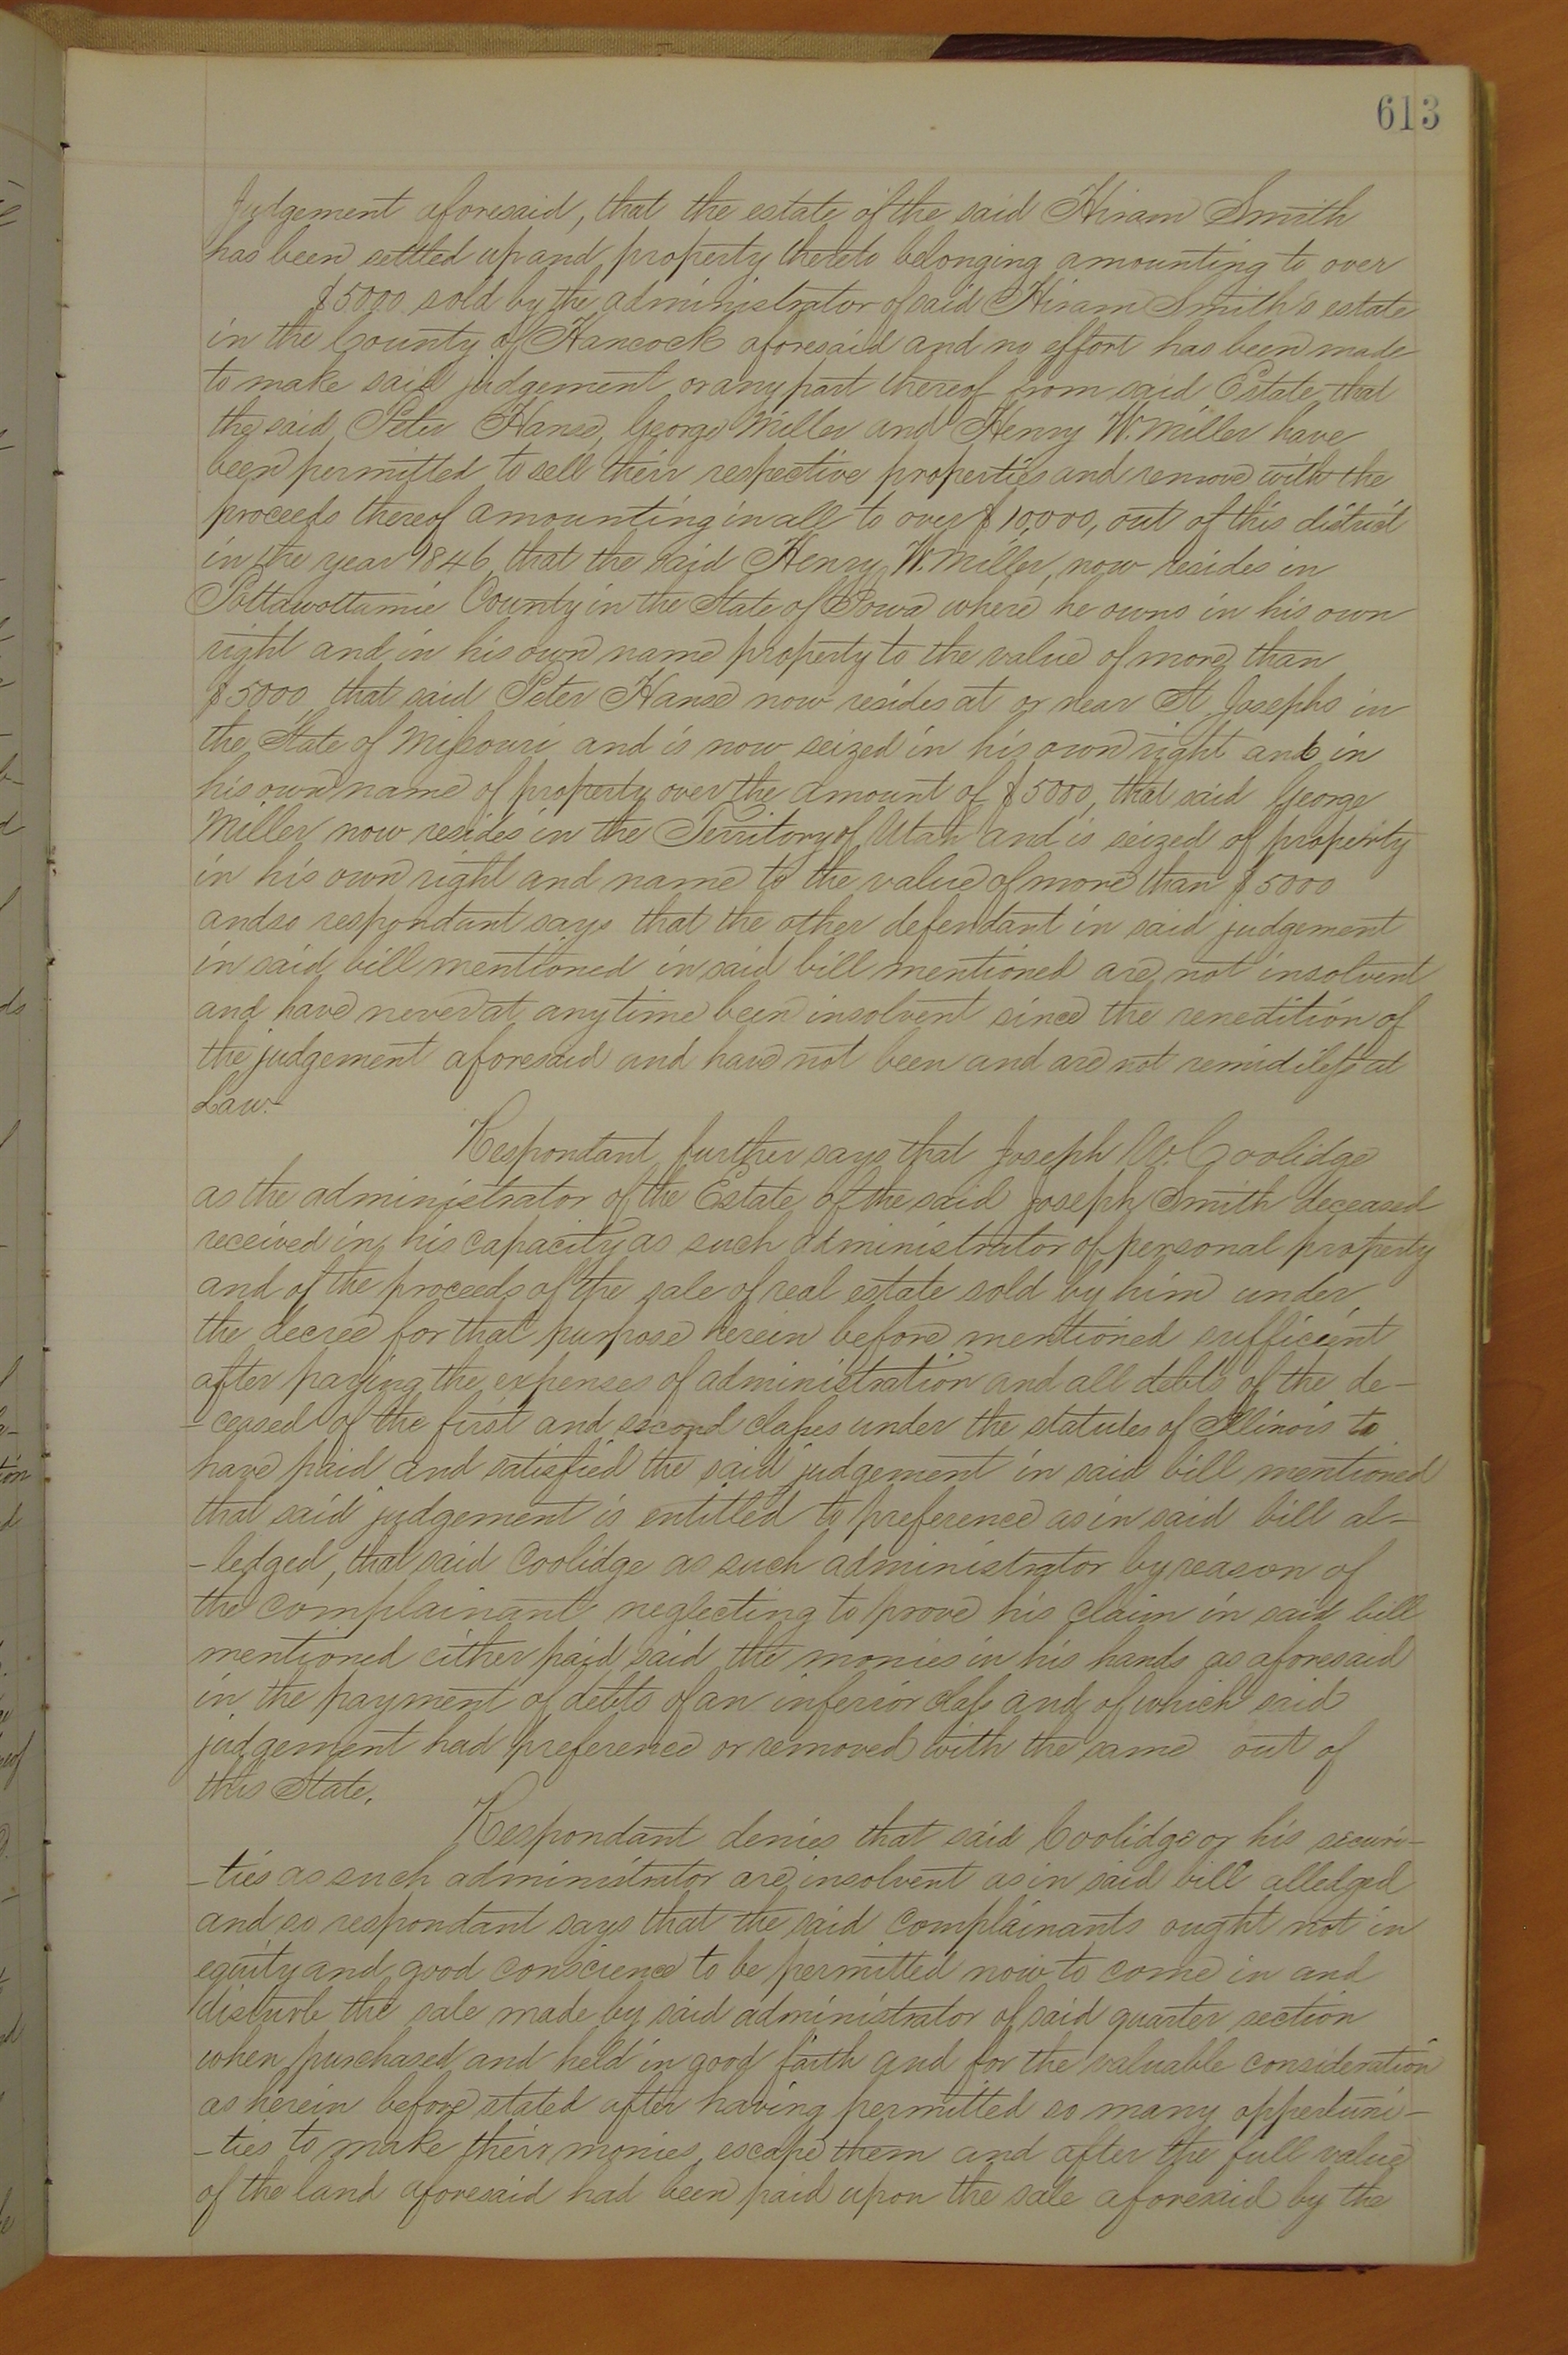 613
Judgement aforesaid, that the estate of the said Hiram Smith
has been settled up and property thereto belonging amounting to over
$5000 sold by the administrator of said Hiram Smith's estate
in the County of Hancock aforesaid and no effort has been made
to make said judgement or any part thereof from said Estate, that
the said Peter Hanse, George Miller and Henry W. Miller have
been permitted to sell their respective properties and remove with the
proceeds thereof amounting in all to over $10,000, out of this district
in the year 1846, that the said Henry W. Miller, now resides in
Pottawottamie County in the State of Iowa where he owns in his own
right and in his own name property to the value of more than
$5000, that said Peter Hanse now resides at or near St Josephs in
the State of Missouri and is now seized in his own right and in
his own name of property over the amount of $5000, that said George
Miller now resides in the Territory of Utah and is seized of property
in his own right and name to the value of more than $5000
and so respondant says that the other defendant in said judgement
in said bill mentioned in said bill mentioned are not insolvent
and have never at any time been insolvent since the renedition of
the judgement aforesaid and have not been and are not remidiless at
Law.
Respondant further says that Joseph W. Coolidge
as the administrator of the Estate of the said Joseph Smith deceased
received in his capacity as such administrator of personal property
and of the proceeds of the sale of real estate sold by him under
the decree for that purpose herein before mentioned sufficient
after paying the expenses of administration and all debts of the de-
-ceased of the first and second classes under the statutes of Illinois to
have paid and satisfied the said judgement in said bill mentioned
that said judgement is entitled to preference as in said bill al-
-ledged, that said Coolidge as such administrator by reason of
the complainant neglecting to prove his claim in said bill
mentioned either paid said the monies in his hands as aforesaid
in the payment of debts of an inferior class and of which said
judgement had preference or removed with the same out of
this State.
Respondant denies that said Coolidge or his securi-
-ties as such administrator are insolvent as in said bill alledged
and so respondant says that the said complainants ought not in
equity and good conscience to be permitted now to come in and
disturb the sale made by said administrator of said quarter section
when purchased and held in good faith and for the valuable consideration
as herein before stated after having permitted so many opportuni-
-ties to make their monies escape them and after the full value
of the land aforesaid had been paid upon the sale aforesaid by the